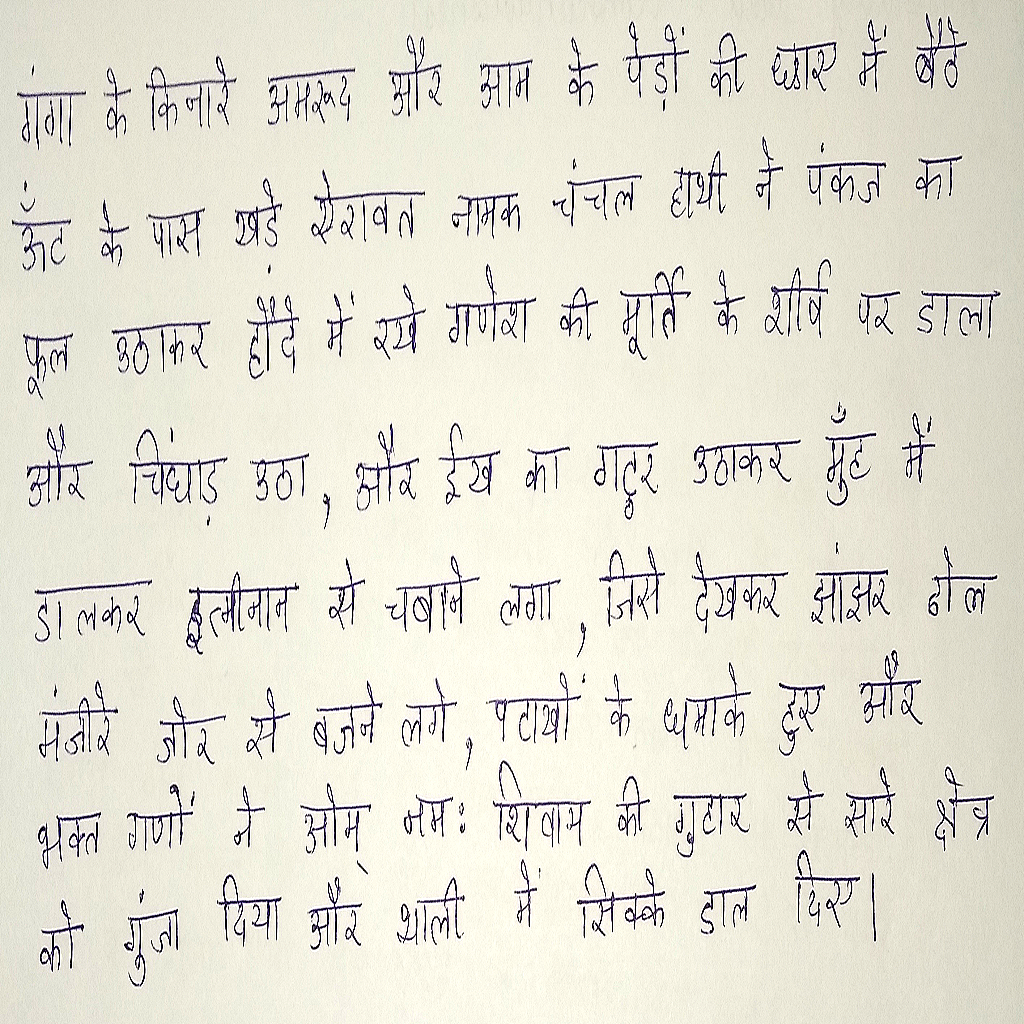 गंगा के किनारे अमरूद और आम के पेड़ों की छाए में बैठे
ऊँट के पास खड़े ऐरावत नामक चंचल हाथी ने पंकज का
फूल उठाकर हौदे में रखे गणेश की मूर्ति के शीर्ष पर डाला
और चिंघाड़ उठा, और ईख का गट्ठर उठाकर मुँह में
डालकर इत्मीनान से चबाने लगा, जिसे देखकर झांझर ढोल
मंजीरे जोर से बजने लगे, पटाखों के धमाके हुए और
भक्त गणों ने ओम् नमः शिवाय की गुहार से सारे क्षेत्र
को गुंजा दिया और थाली में सिक्के डाल दिए।